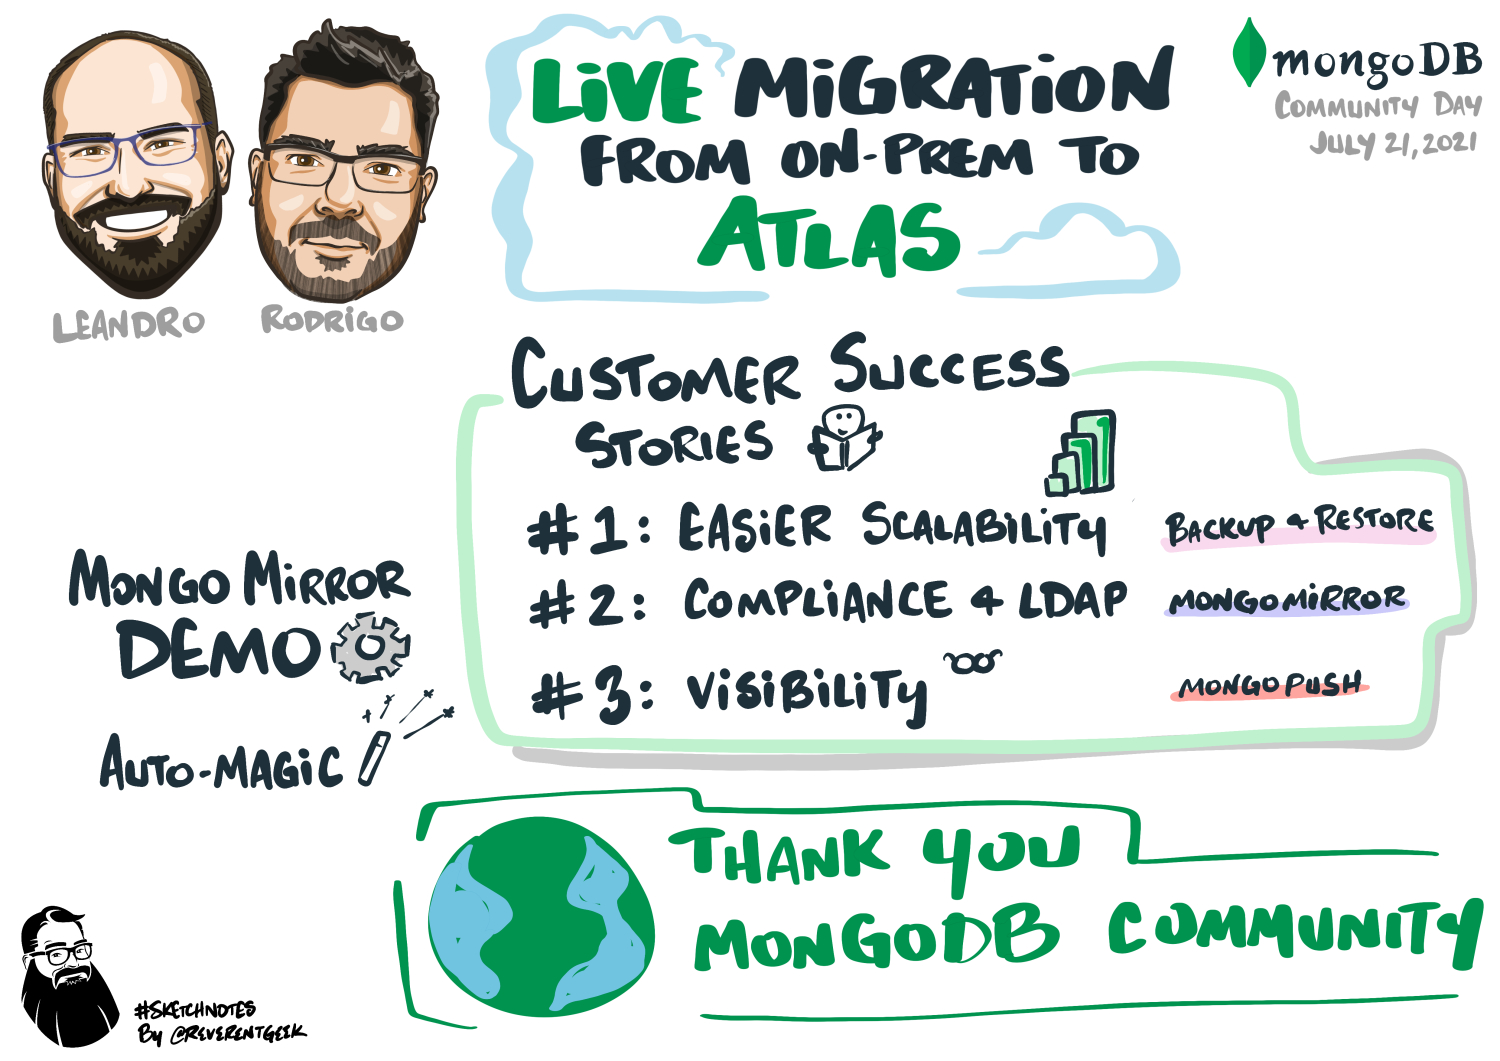 LiVE MiGRATiON
FROM ON-PREM TO
ATLAS
mongoDB
COMMUNITY DAY
JULY 21, 2021
LEANDRO
RODRiGO
CUSTOMER SUCCESS
STORIES
#1: EASiER SCALABiLiTY
BACKUP & RESTORE
#2: COMPLiANCE & LDAP
MONGOMiRROR
#3: ViSiBiLiTy
MONGOPUSH
MONGO MiRROR
DEMO
AUTO-MAGiC
THANK YOU
MONGODB COMMUNITY
#SKETCHNOTES
By @REVERENTGEEK